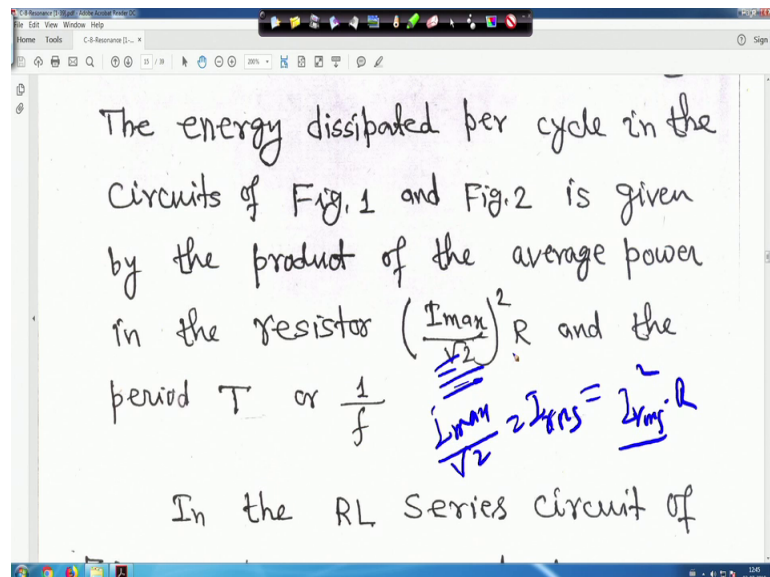 C-8-Resonance [1-39].pdf - Adobe Acrobat Reader DC
File Edit View Window Help
Home Tools C-8-Resonance [1-... × Sign
15 / 39 200%
The energy dissipated per cycle in the
Circuits of Fig. 1 and Fig. 2 is given
by the product of the average power
in the resistor (Imax/√2)² R and the
period T or 1/f
Imax/√2 = Irms = I²rms . R
In the RL Series circuit of
12:45